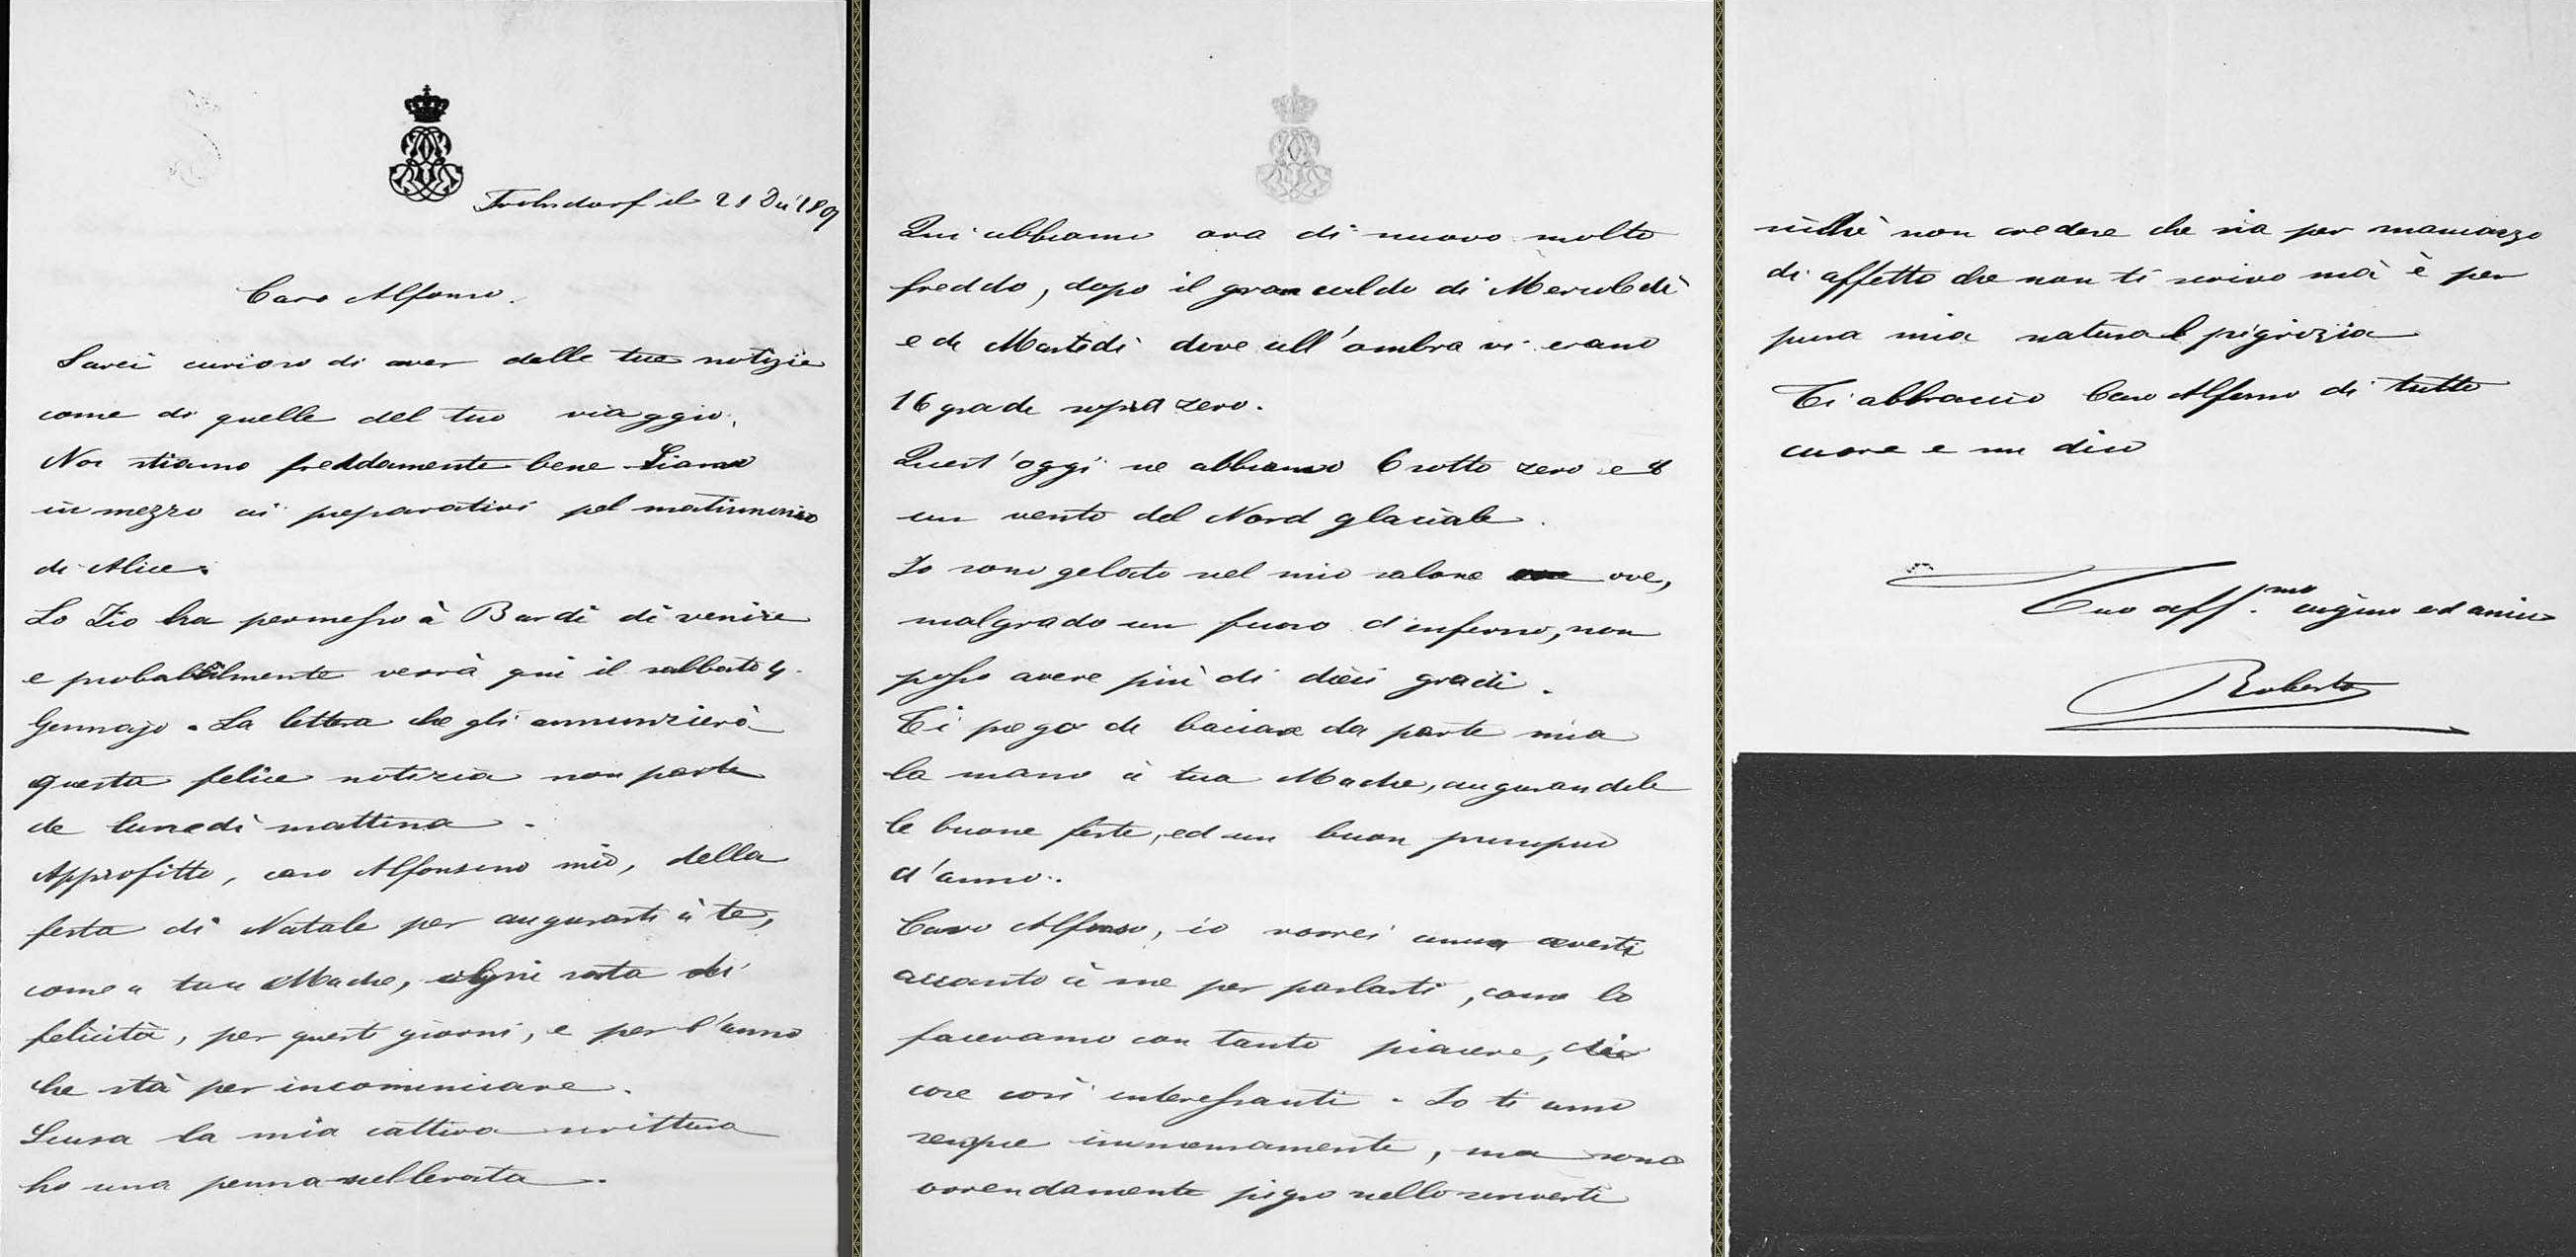 Frohsdorf il 21 Di 189
Caro Alfonso.
Sarei curioso di aver delle tue notizie
come di quelle del tuo viaggio.
Noi stiamo freddamente bene Siamo
in mezzo ai preparativi pel matrimonio
di Alice.
Lo Zio ha permesso à Bardi di venire
e probabilmente verrà qui il sabbato 4
Gennajo. La lettera che gli annunzierà
questa felice notizia non parte
che lunedì mattina.
Approfitto, caro Alfonsino mio, della
festa di Natale per augurarti à te,
come a tua Madre, ogni sorta di
felicità, per questi giorni, e per l'anno
che stà per incominciare.
Scusa la mia cattiva scrittura
ho una penna scellerata.
Qui abbiamo ora di nuovo molto
freddo, dopo il gran caldo di Mercoledì
e di Martedi dove all'ombra vi erano
16 gradi sopra zero.
Quest'oggi ne abbiamo 6 sotto zero e
un vento del Nord glaciale.
Io sono gelato nel mio salone ove,
malgrado un fuoco d'inferno, non
posso avere più di dieci gradi.
Ti prego di baciare da parte mia
la mano à tua Madre, augurandole
le buone feste, ed un buon principio
d'anno.
Caro Alfonso, io vorrei averti
accanto à me per parlarti, come lo
facevamo con tanto piacere, di
cose così interessanti. Io ti amo
sempre immensamente, ma sono
orrendamente pigro nello scriverti
sicchè non credere che sia per mancanza
di affetto che non ti scrivo mà è per
pura mia natural pigrizia
Ti abbraccio Caro Alfonso di tutto
cuore e mi dico
Tuo aff.mo cugino ed amico
Roberto